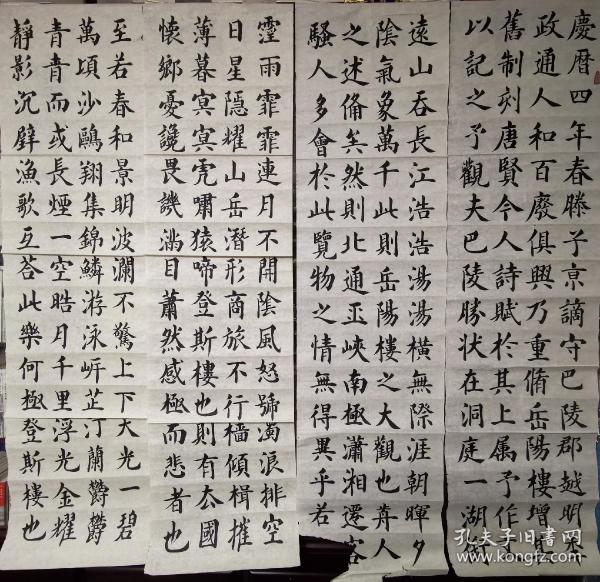 慶曆四年春滕子京謫守巴陵郡越明
政通人和百廢俱興乃重脩岳陽樓增其
舊制刻唐賢今人詩賦於其上属予作文
以記之予觀夫巴陵勝狀在洞庭一湖
遠山吞長江浩浩湯湯橫無際涯朝暉夕
陰氣象萬千此則岳陽樓之大觀也前人
之述俻矣然則北通巫峽南極瀟湘遷客
騷人多會於此覽物之情無得異乎若
霪雨霏霏連月不開陰風怒號濁浪排空
日星隱耀山岳潛形商旅不行檣傾楫摧
薄暮冥冥虎嘯猿啼登斯樓也則有去國
懷鄉憂讒畏譏滿目蕭然感極而悲者也
至若春和景明波瀾不驚上下天光一碧
萬頃沙鷗翔集錦鱗游泳岸芷汀蘭鬱鬱
青青而或長煙一空皓月千里浮光金耀
靜影沉璧漁歌互答此樂何極登斯樓也
孔夫子旧书网